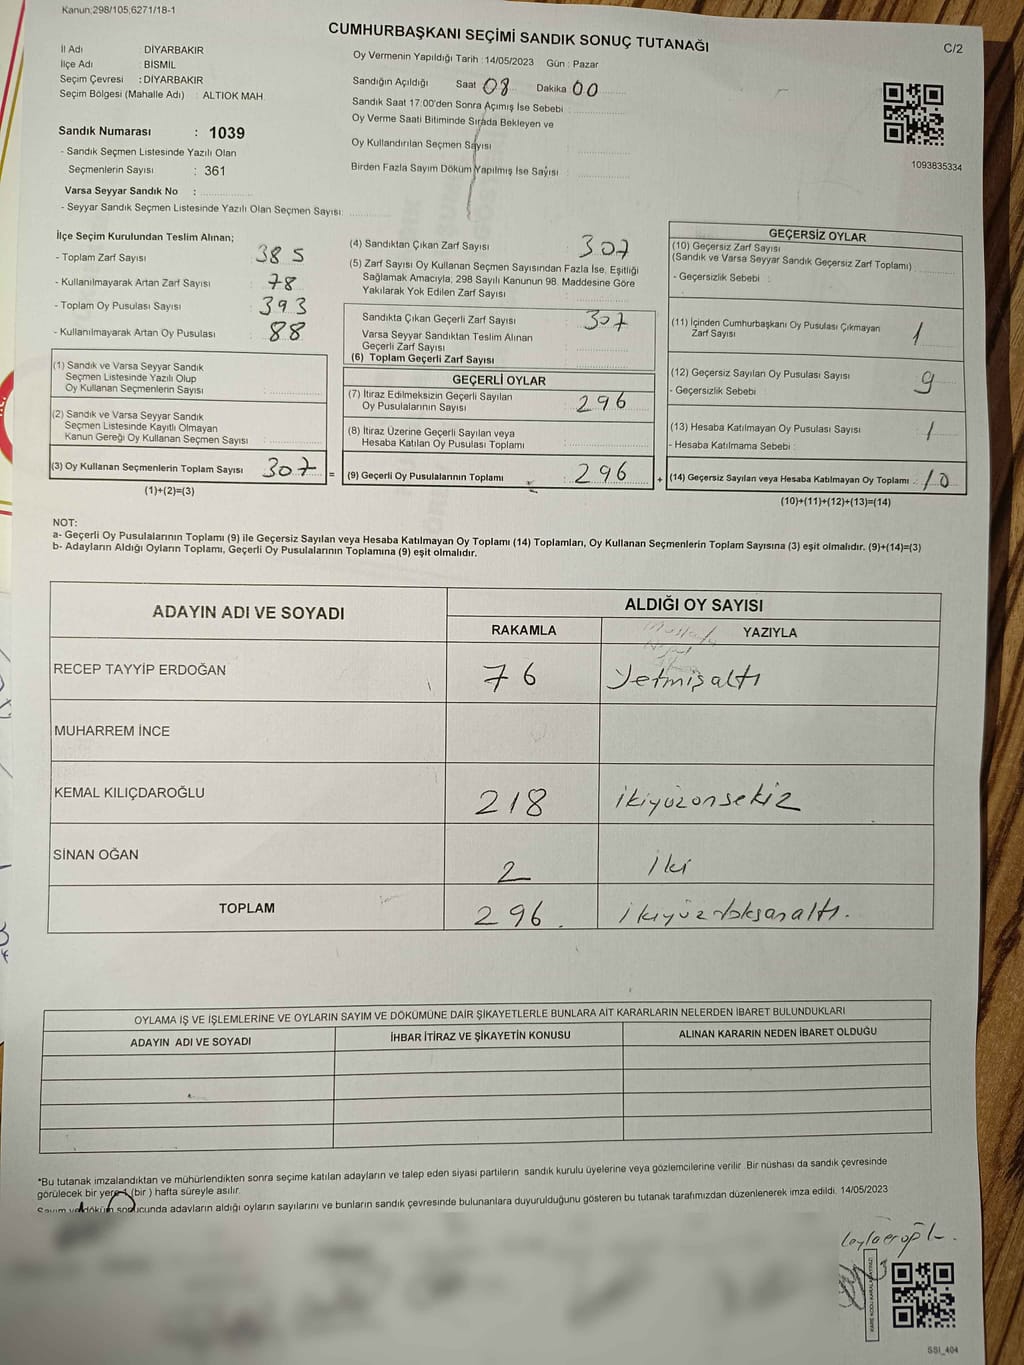 Kanun;298/105;6271/18-1
CUMHURBAŞKANI SEÇİMİ SANDIK SONUÇ TUTANAĞI
C/2
İl Adı DİYARBAKIR
İlçe Adı : BİSMİL
Seçim Çevresi : DİYARBAKIR
Seçim Bölgesi (Mahalle Adı) : ALTIOK MAH.
Sandık Numarası : 1039
- Sandık Seçmen Listesinde Yazılı Olan
Seçmenlerin Sayısı : 361
Varsa Seyyar Sandık No :
- Seyyar Sandık Seçmen Listesinde Yazılı Olan Seçmen Sayısı:
Oy Vermenin Yapıldığı Tarih : 14/05/2023 Gün : Pazar
Sandığın Açıldığı Saat 08 Dakika 00
Sandık Saat 17:00'den Sonra Açımış İse Sebebi :
Oy Verme Saati Bitiminde Sırada Bekleyen ve
Oy Kullandırılan Seçmen Sayısı
Birden Fazla Sayım Döküm Yapılmış İse Sayısı :
1093835334
İlçe Seçim Kurulundan Teslim Alınan;
- Toplam Zarf Sayısı : 385
- Kullanılmayarak Artan Zarf Sayısı : 78
- Toplam Oy Pusulası Sayısı : 393
- Kullanılmayarak Artan Oy Pusulası : 88
(1) Sandık ve Varsa Seyyar Sandık
Seçmen Listesinde Yazılı Olup
Oy Kullanan Seçmenlerin Sayısı :
(2) Sandık ve Varsa Seyyar Sandık
Seçmen Listesinde Kayıtlı Olmayan
Kanun Gereği Oy Kullanan Seçmen Sayısı :
(3) Oy Kullanan Seçmenlerin Toplam Sayısı 307 =
(1)+(2)=(3)
(4) Sandıktan Çıkan Zarf Sayısı : 307
(5) Zarf Sayısı Oy Kullanan Seçmen Sayısından Fazla İse, Eşitliği
Sağlamak Amacıyla, 298 Sayılı Kanunun 98. Maddesine Göre
Yakılarak Yok Edilen Zarf Sayısı :
Sandıkta Çıkan Geçerli Zarf Sayısı : 307
Varsa Seyyar Sandıktan Teslim Alınan
Geçerli Zarf Sayısı :
(6) Toplam Geçerli Zarf Sayısı
GEÇERLİ OYLAR
(7) İtiraz Edilmeksizin Geçerli Sayılan
Oy Pusulalarının Sayısı : 296
(8) İtiraz Üzerine Geçerli Sayılan veya
Hesaba Katılan Oy Pusulası Toplamı :
(9) Geçerli Oy Pusulalarının Toplamı : 296 +
GEÇERSİZ OYLAR
(10) Geçersiz Zarf Sayısı
(Sandık ve Varsa Seyyar Sandık Geçersiz Zarf Toplamı) :
- Geçersizlik Sebebi :
(11) İçinden Cumhurbaşkanı Oy Pusulası Çıkmayan
Zarf Sayısı : 1
(12) Geçersiz Sayılan Oy Pusulası Sayısı : 9
- Geçersizlik Sebebi :
(13) Hesaba Katılmayan Oy Pusulası Sayısı : 1
- Hesaba Katılmama Sebebi :
(14) Geçersiz Sayılan veya Hesaba Katılmayan Oy Toplamı : 10
(10)+(11)+(12)+(13)=(14)
NOT:
a- Geçerli Oy Pusulalarının Toplamı (9) ile Geçersiz Sayılan veya Hesaba Katılmayan Oy Toplamı (14) Toplamları, Oy Kullanan Seçmenlerin Toplam Sayısına (3) eşit olmalıdır. (9)+(14)=(3)
b- Adayların Aldığı Oyların Toplamı, Geçerli Oy Pusulalarının Toplamına (9) eşit olmalıdır.
ADAYIN ADI VE SOYADI
ALDIĞI OY SAYISI
RAKAMLA YAZIYLA
RECEP TAYYİP ERDOĞAN 76 Yetmişaltı
MUHARREM İNCE
KEMAL KILIÇDAROĞLU 218 ikiyüzonsekiz
SİNAN OĞAN 2 iki
TOPLAM 296. ikiyüzdoksanaltı.
OYLAMA İŞ VE İŞLEMLERİNE VE OYLARIN SAYIM VE DÖKÜMÜNE DAİR ŞİKAYETLERLE BUNLARA AİT KARARLARIN NELERDEN İBARET BULUNDUKLARI
ADAYIN ADI VE SOYADI İHBAR İTİRAZ VE ŞİKAYETİN KONUSU ALINAN KARARIN NEDEN İBARET OLDUĞU
*Bu tutanak imzalandıktan ve mühürlendikten sonra seçime katılan adayların ve talep eden siyasi partilerin sandık kurulu üyelerine veya gözlemcilerine verilir. Bir nüshası da sandık çevresinde
görülecek bir yere 1 (bir ) hafta süreyle asılır.
Sayım ve döküm sonucunda adayların aldığı oyların sayılarını ve bunların sandık çevresinde bulunanlara duyurulduğunu gösteren bu tutanak tarafımızdan düzenlenerek imza edildi. 14/05/2023
SSI_404